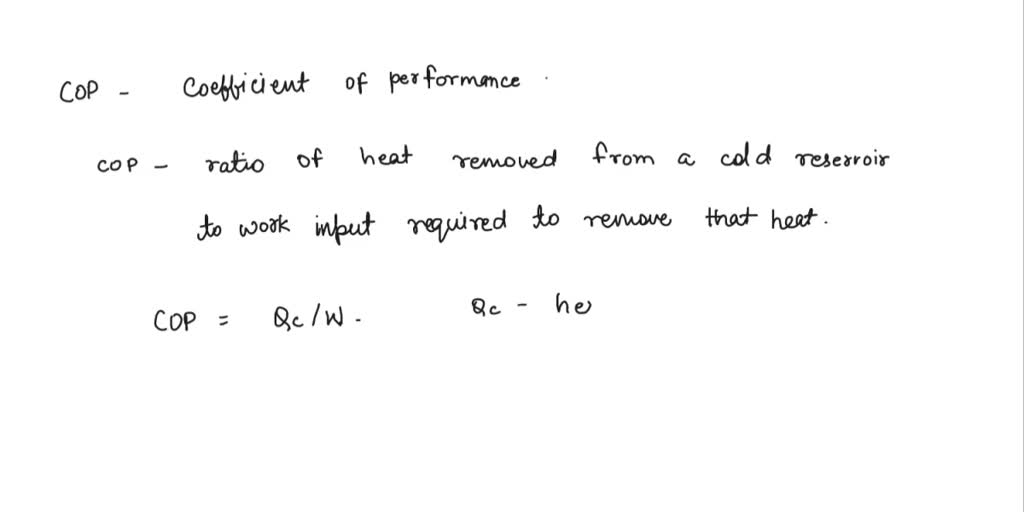 COP - Coefficient of performance .
COP - ratio of heat removed from a cold reservoir
to work input required to remove that heat.
COP = Qc/W. Qc - he